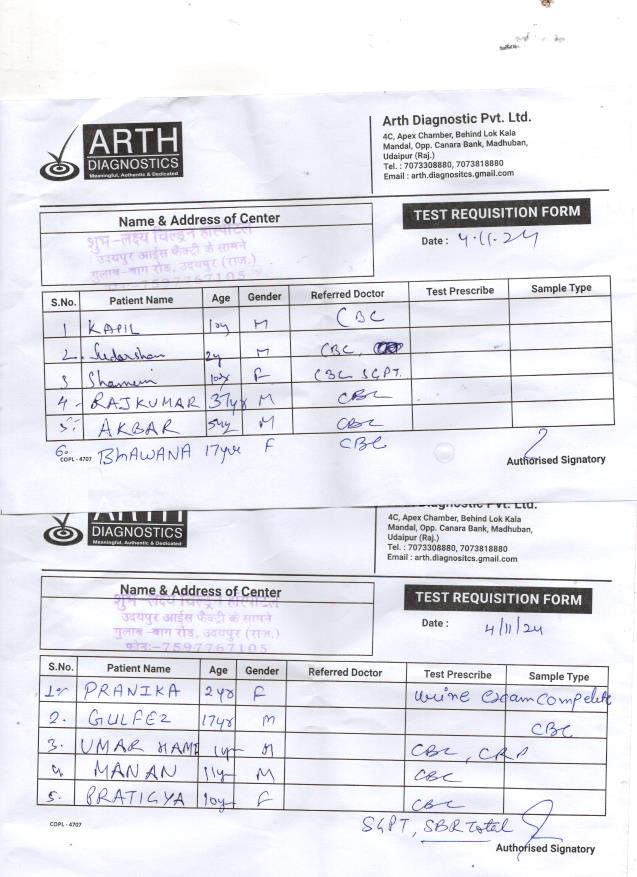 ARTH
DIAGNOSTICS
Meaningful, Authentic & Dedicated
Arth Diagnostic Pvt. Ltd.
4C, Apex Chamber, Behind Lok Kala
Mandal, Opp. Canara Bank, Madhuban,
Udaipur (Raj.)
Tel. : 7073308880, 7073818880
Email : arth.diagnositcs.gmail.com
Name & Address of Center
TEST REQUISITION FORM
शुभ-लक्ष्य चिल्ड्रन हॉस्पीटल
उदयपुर आईस फैक्ट्री के सामने
गुलाब-बाग रोड, उदयपुर (राज.)
फोन:-7597767105
Date : 4.11.24
S.No. Patient Name Age Gender Referred Doctor Test Prescribe Sample Type
1 KAPIL 10y M CBC
2. Sudarshan 2y M CBC,
3 10yr F CBC SGPT.
4 - RAJKUMAR 37yr M CBC
5. AKBAR M CBC
6. BHAWANA 17yr F CBC
COPL - 4707
Authorised Signatory
ARTH
DIAGNOSTICS
Meaningful, Authentic & Dedicated
Arth Diagnostic Pvt. Ltd.
4C, Apex Chamber, Behind Lok Kala
Mandal, Opp. Canara Bank, Madhuban,
Udaipur (Raj.)
Tel. : 7073308880, 7073818880
Email : arth.diagnositcs.gmail.com
Name & Address of Center
TEST REQUISITION FORM
शुभ-लक्ष्य चिल्ड्रन हॉस्पीटल
उदयपुर आईस फैक्ट्री के सामने
गुलाब-बाग रोड, उदयपुर (राज.)
फोन:-7597767105
Date : 4/11/24
S.No. Patient Name Age Gender Referred Doctor Test Prescribe Sample Type
1. PRANIKA 2yr F urine exam compelite
2. GULFEZ 17yr M CBC
3. UMAR HAME 1yr M CBC, CRP
4. MANAN 11yr M CBC
5. PRATIGYA 10yr F CBC
SGPT, SBR Total
COPL - 4707
Authorised Signatory